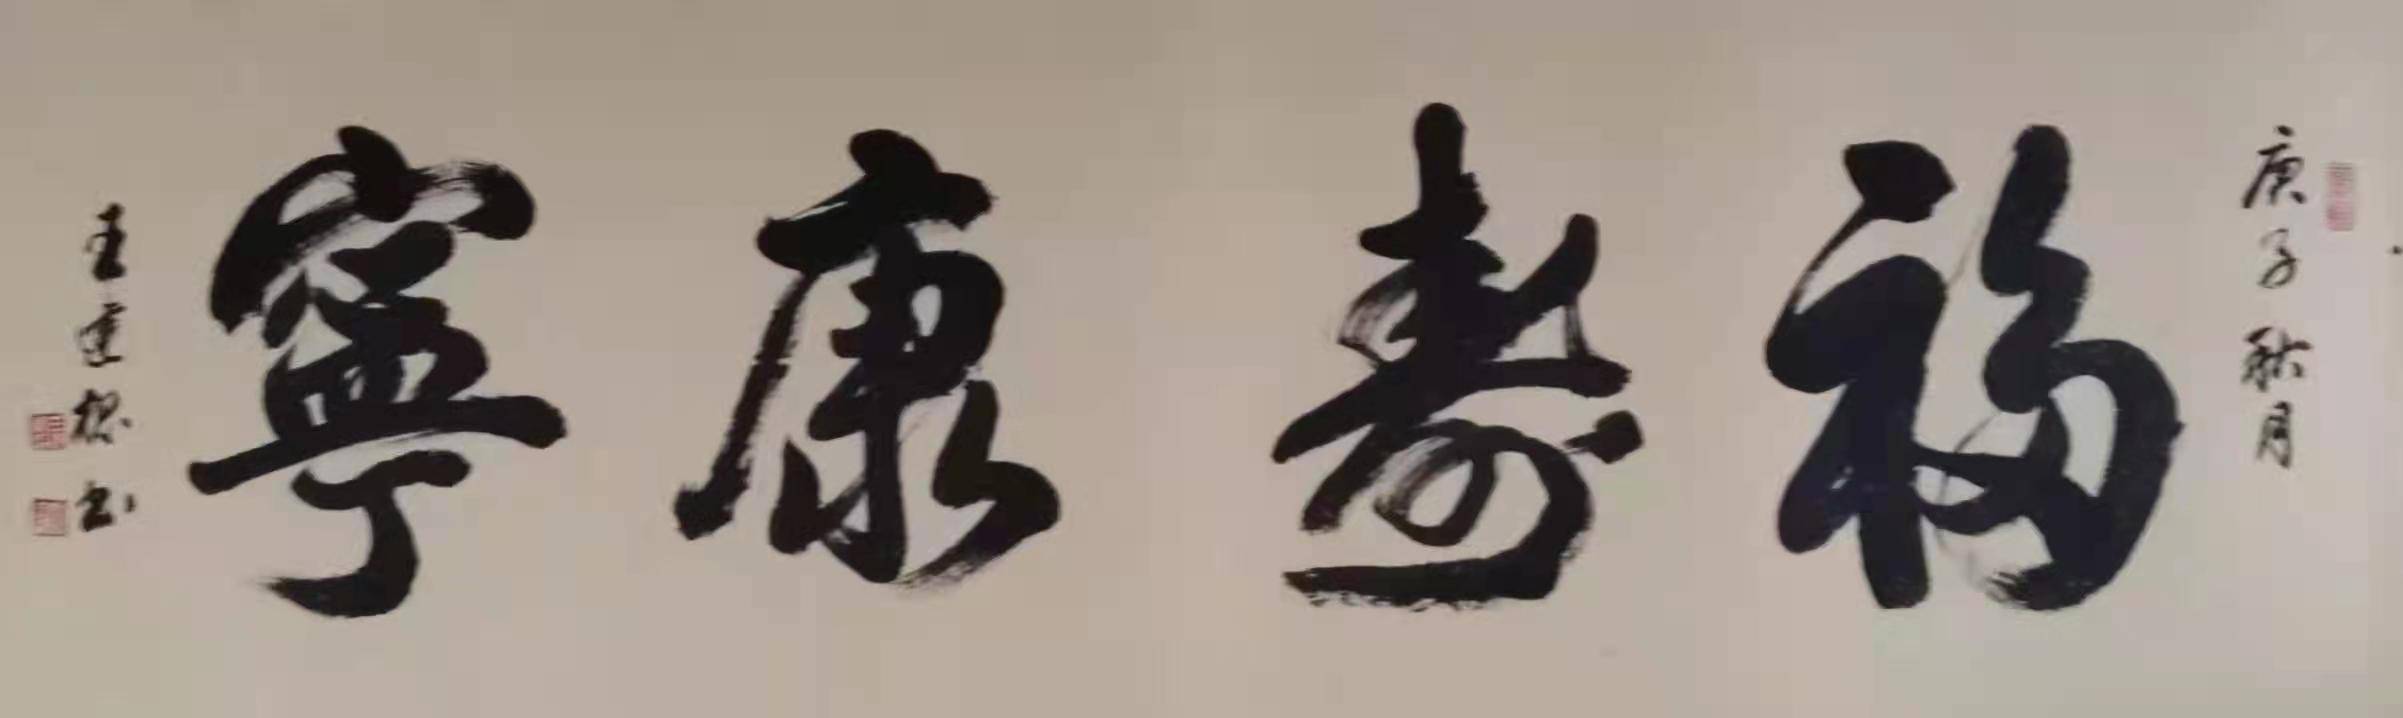 庚子秋月
福壽康寧
王建松书